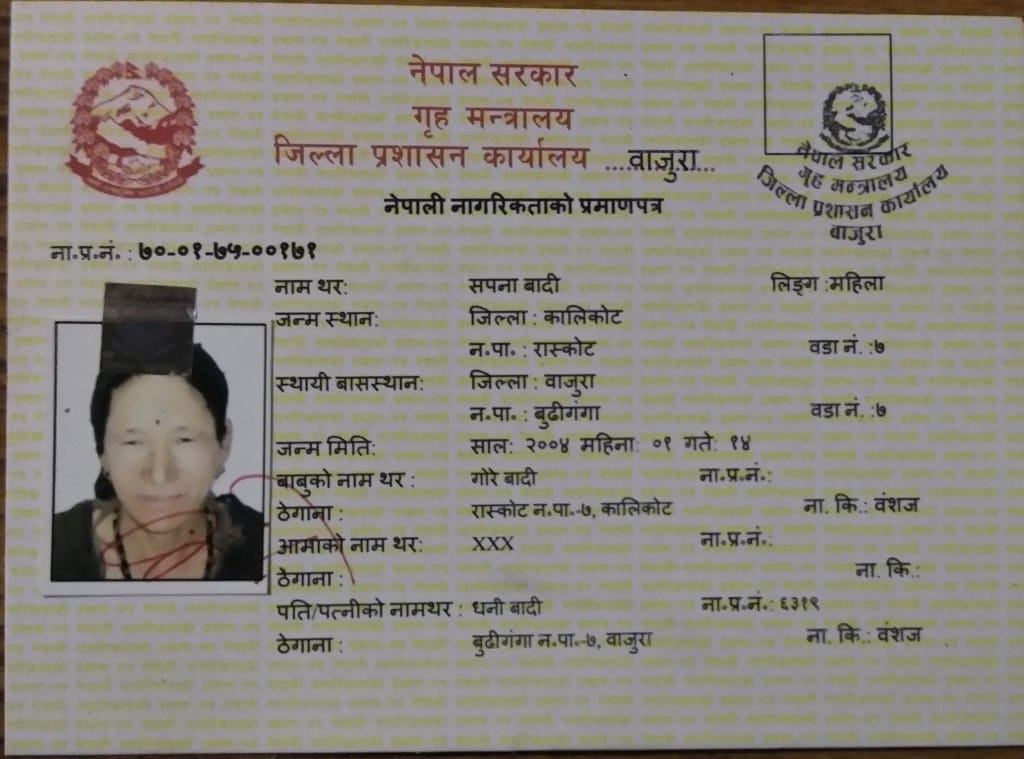 नेपाल सरकार
गृह मन्त्रालय
जिल्ला प्रशासन कार्यालय ....वाजुरा...
नेपाली नागरिकताको प्रमाणपत्र
नेपाल सरकार
गृह मन्त्रालय
जिल्ला प्रशासन कार्यालय
बाजुरा
ना.प्र.नं. : ७०-०१-७५-००१७१
नाम थर: सपना बादी लिङ्ग :महिला
जन्म स्थान: जिल्ला : कालिकोट
न.पा. : रास्कोट वडा नं. :७
स्थायी बासस्थान: जिल्ला : वाजुरा
न.पा. : बुढीगंगा वडा नं. :७
जन्म मिति: साल: २००४ महिना: ०१ गते: १४
बाबुको नाम थर : गोरे बादी ना.प्र.नं.:
ठेगाना : रास्कोट न.पा.-७, कालिकोट ना. कि.: वंशज
आमाको नाम थर: XXX ना.प्र.नं.:
ठेगाना : ना. कि.:
पति/पत्नीको नामथर : धनी बादी ना.प्र.नं.: ६३१९
ठेगाना : बुढीगंगा न.पा.-७, वाजुरा ना. कि.: वंशज